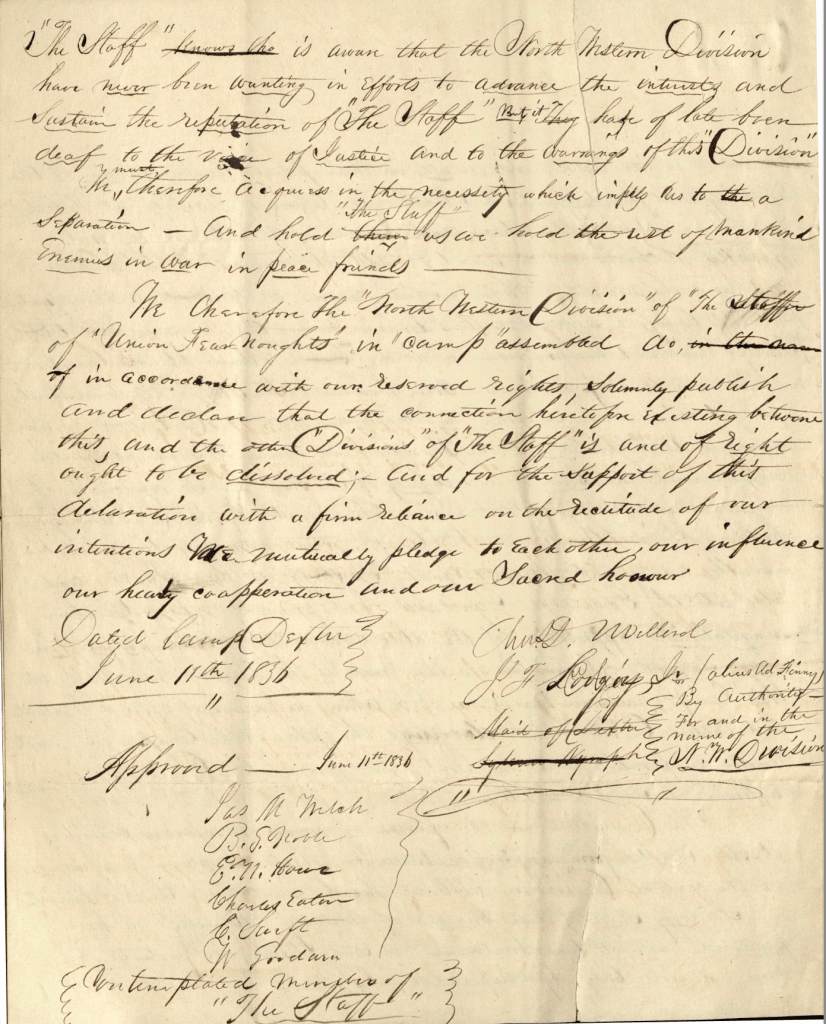 "The Staff" knows the is aware that the North Western Division
have never been wanting in Efforts to advance the interests and
Sustain the reputation of "The Staff" But, it They have of late been
deaf to the voice of Justice and to the warnings of this "Division"
We, must therefore acquiess in the necessity which impels us to the a
Separation — And hold them "The Staff" as we hold the rest of Mankind
Enemies in war in peace friends —
We therefore The "North Western Division" of "The Staff
of "Union Fear Noughts" in "camp" assembled do, in the name
of in accordance with our reserved rights, Solemnly publish
and declare that the connection heretofore Existing between
this, and the other "Divisions" of "The Staff" is and of right
ought to be dissolved; - And for the support of this
delaration with a firm reliance on the rectitude of our
intentions We mutually pledge to Each other, our influence
our hearty coapperation and our Sacred honour
Dated Camp Dexter
June 11th 1836
"
Chas. D. Willard
J. F. Jr (alias Ad Finny)
Maid of Dexter
By Authority —
For and in the
name of the
N. W. Division
" "
Approved — June 11th 1836
Jas M Welch
B. S. Noble
E. N. Howe
Charles Eaton
C. Swift
W Goodwin
Contemplated members of
"The Staff"